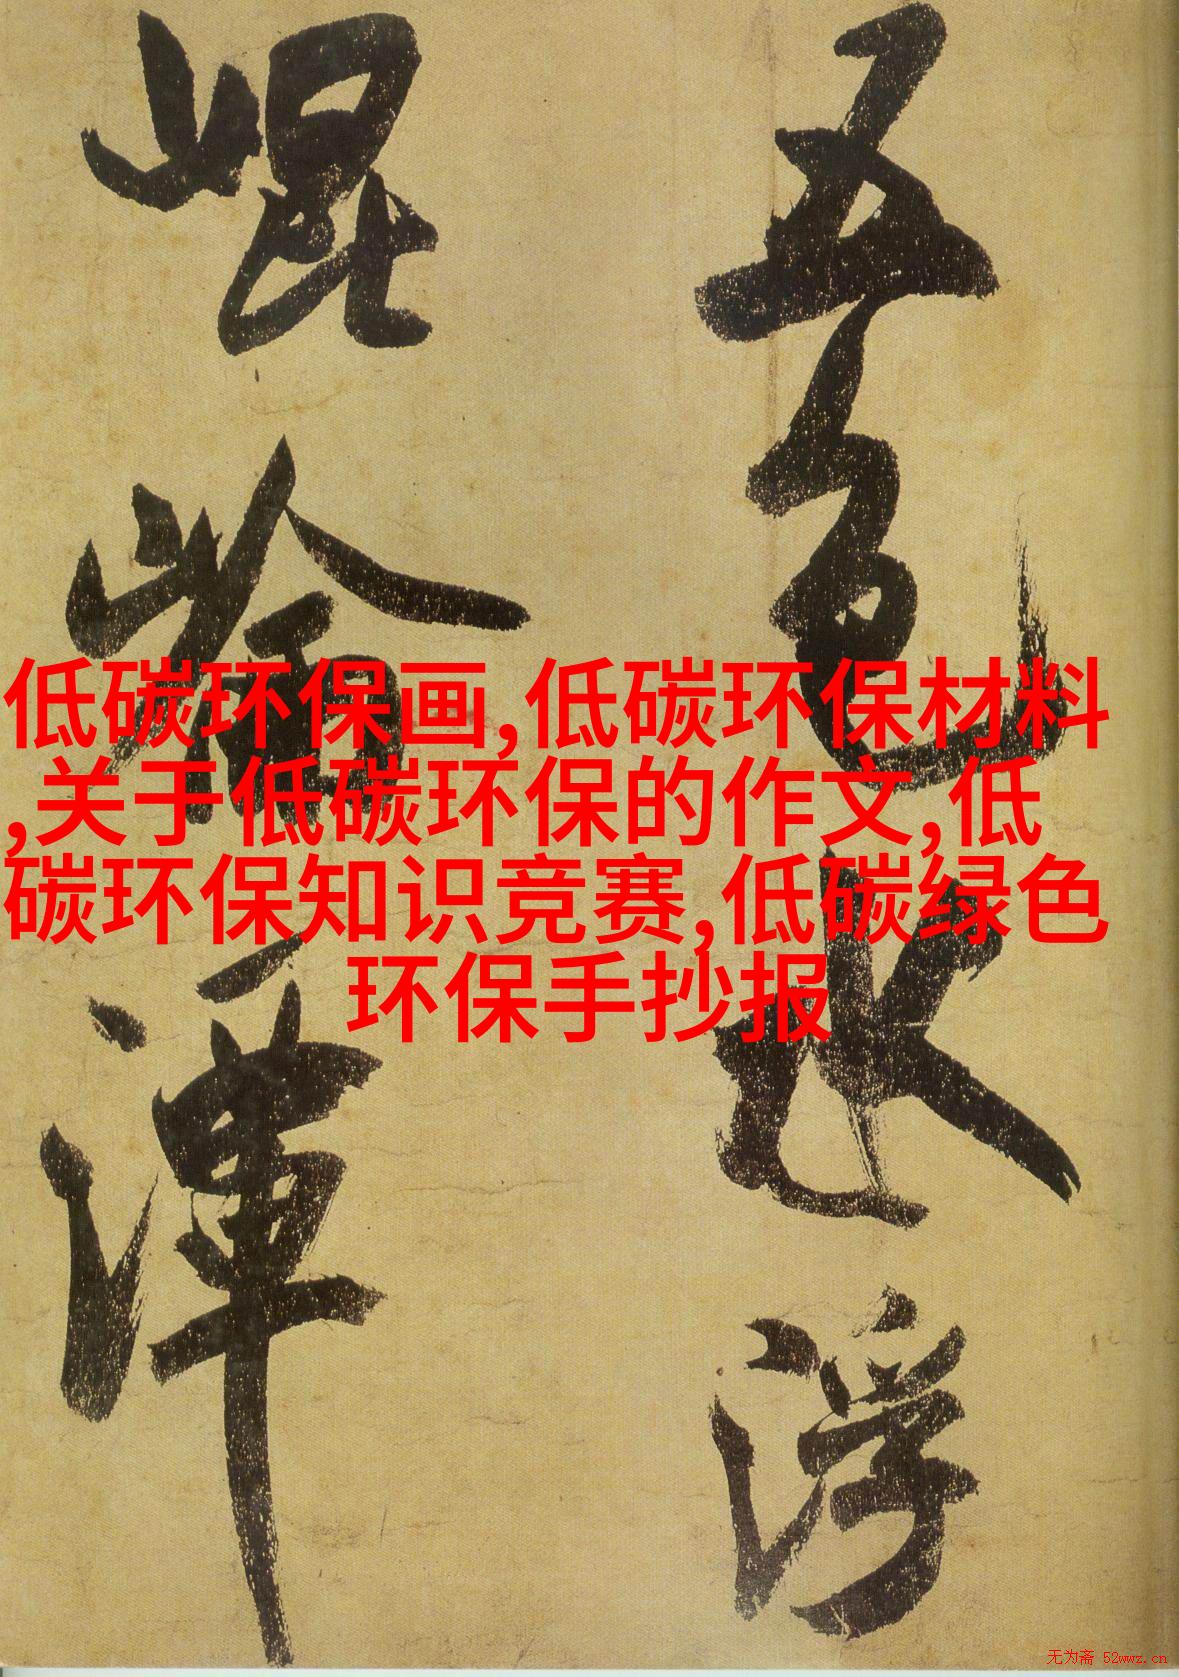 五色水浮
崐崘潭
低碳环保画,低碳环保材料
,关于低碳环保的作文,低
碳环保知识竞赛,低碳绿色
环保手抄报
无为斋 52wwz.cn